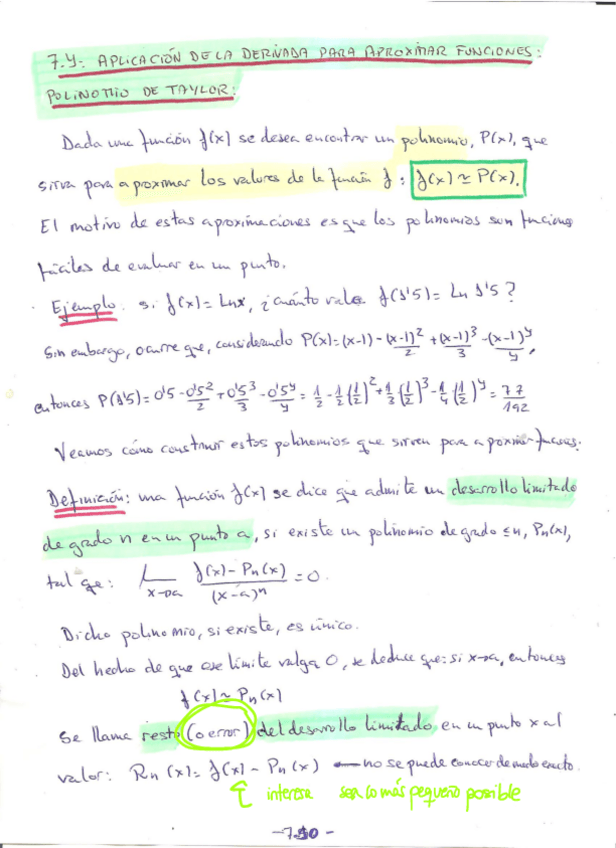 7.4: APLICACIÓN DE LA DERIVADA PARA APROXIMAR FUNCIONES:
POLINOMIO DE TAYLOR:
Dada una función f(x) se desea encontrar un polinomio, P(x), que
sirva para aproximar los valores de la función f: f(x) ≃ P(x).
El motivo de estas aproximaciones es que los polinomios son funciones
fáciles de evaluar en un punto.
Ejemplo: si f(x) = Lnx, ¿cuánto vale f(1'5) = Ln 1'5?
Sin embargo, ocurre que, considerando P(x) = (x-1) - (x-1)²/2 + (x-1)³/3 - (x-1)⁴/4,
entonces P(1'5) = 0'5 - 0'5²/2 + 0'5³/3 - 0'5⁴/4 = 1/2 - 1/2(1/2)² + 1/3(1/2)³ - 1/4(1/2)⁴ = 77/192
Veamos cómo construir estos polinomios que sirven para aproximar
Definición: una función f(x) se dice que admite un desarrollo limitado
de grado n en un punto a, si existe un polinomio de grado ≤n, Pn(x),
tal que: L x→a (f(x) - Pn(x))/(x-a)ⁿ = 0.
Dicho polinomio, si existe, es único.
Del hecho de que ese límite valga 0, se deduce que: si x→a, entonces
f(x) ≃ Pn(x)
Se llama resto (o error) del desarrollo limitado en un punto x al
valor: Rn(x) = f(x) - Pn(x) ← no se puede conocer de modo exacto.
interesa sea lo más pequeño posible